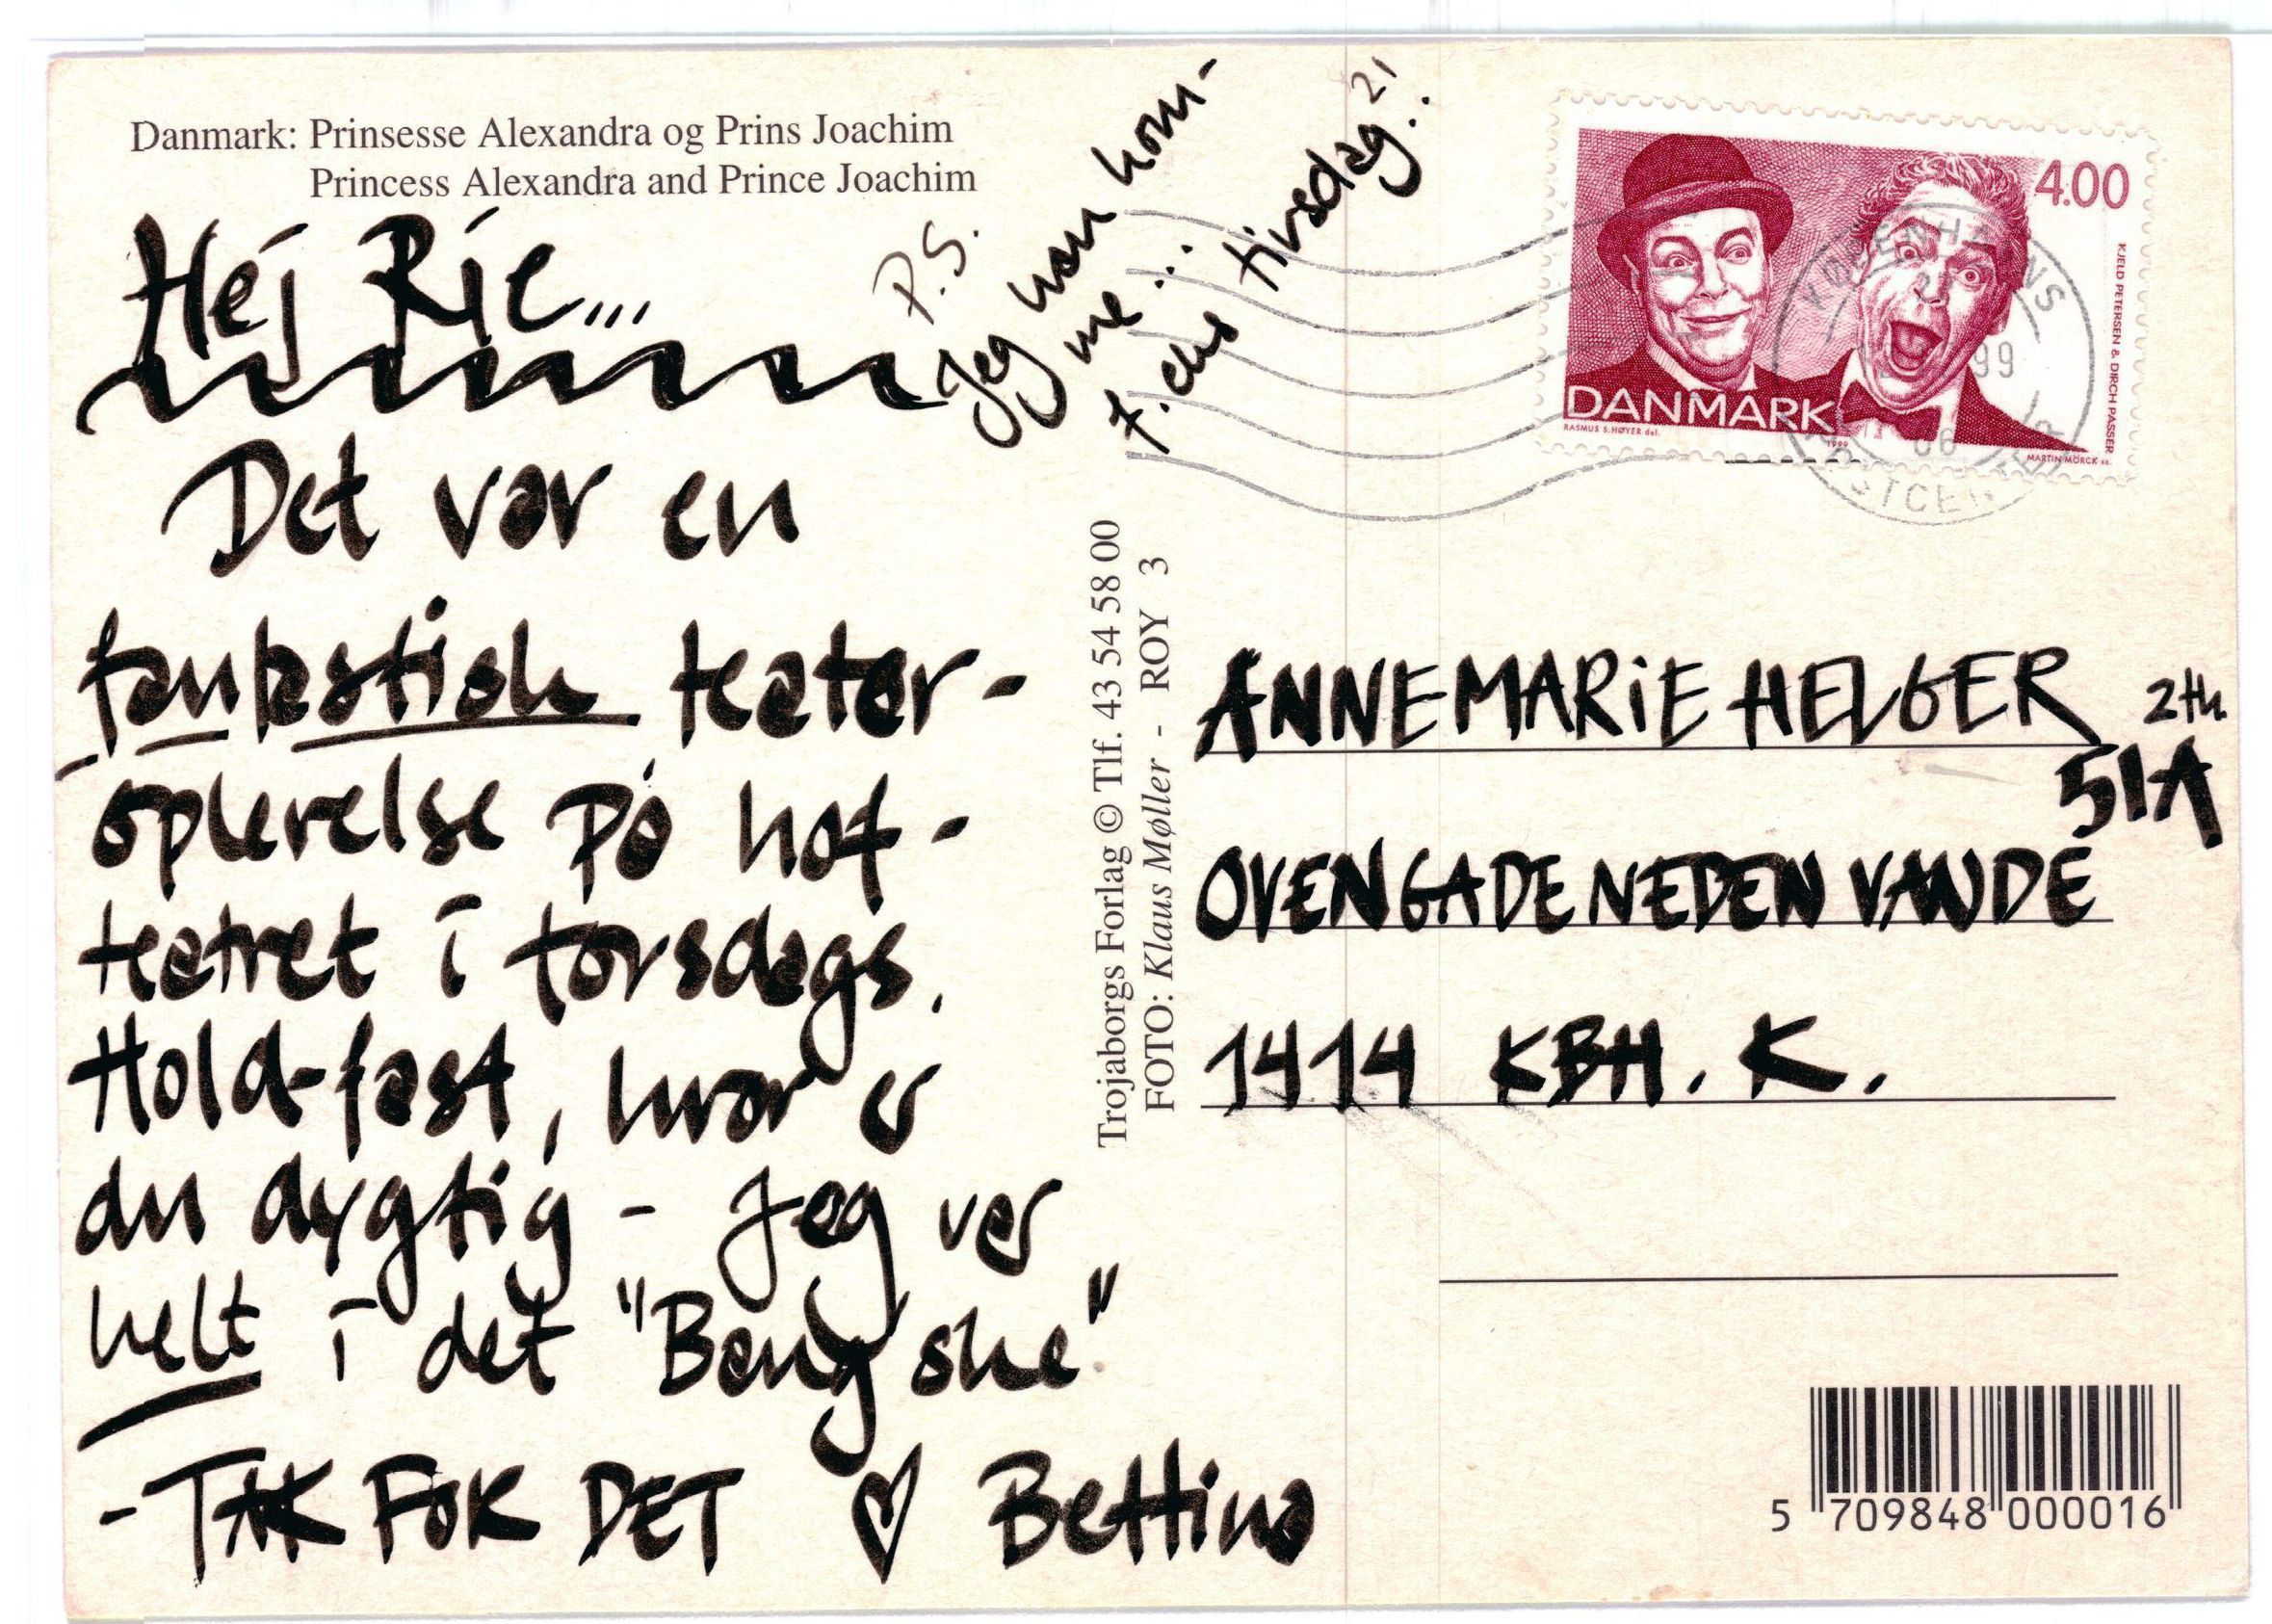 Danmark: Prinsesse Alexandra og Prins Joachim
Princess Alexandra and Prince Joachim
Hej Rie...
Det var en
fantastisk teater-
oplevelse på hof-
teatret i torsdags.
Hold-fast, hvor er
du dygtig - Jeg var
helt i det "Bengske"
- TAK FOR DET ♡ Bettina
P.S.
Jeg kan kom-
me...
f. eks tirsdag.. 21
Trojaborgs Forlag © Tlf. 43 54 58 00
FOTO: Klaus Møller - ROY 3
4.00
DANMARK
KJELD PETERSEN & DIRCH PASSER
RASMUS S. HØYER del.
1999
MARTIN MÖRCK sc.
KØBENHAVNS
99
POSTCENTER
ANNEMARIE HELGER
2th.
51A
OVENGADE NEDEN VANDE
1414 KBH. K.
5 709848 000016